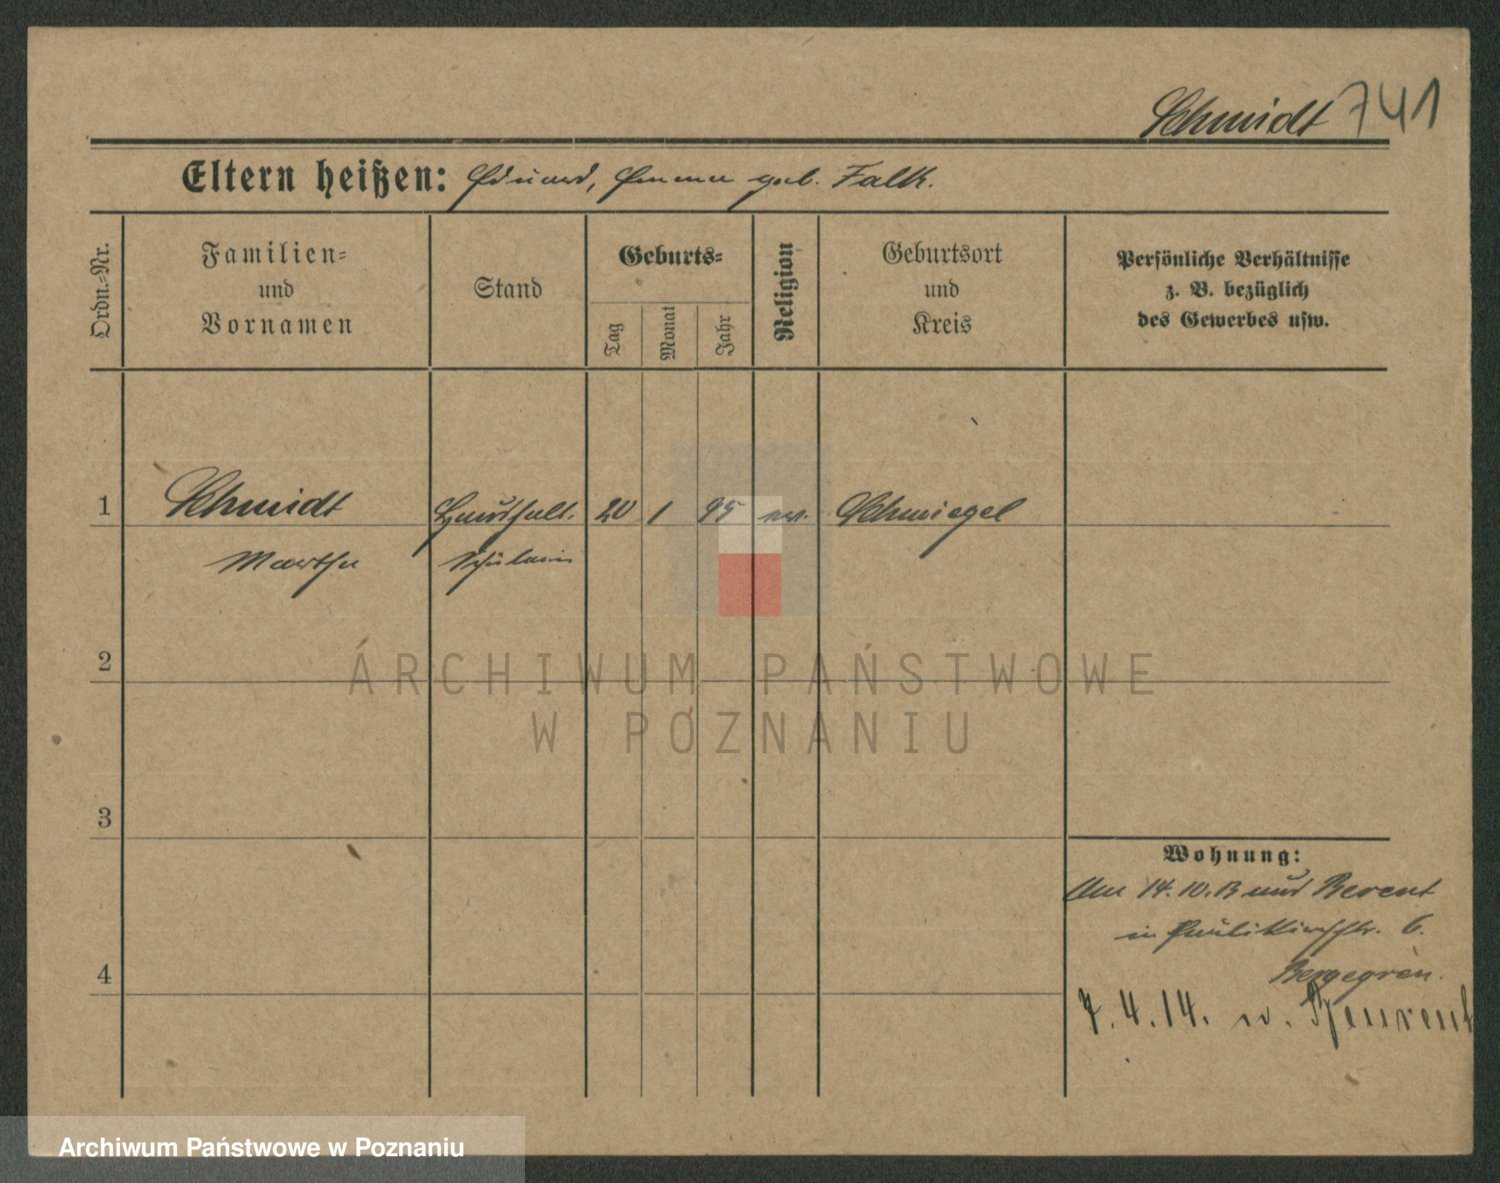 Schmidt 741
Eltern heißen: Eduard, Emma geb. Falk.
Ordn.-Nr.
Familien-
und
Vornamen
Stand
Geburts-
Tag
Monat
Jahr
Religion
Geburtsort
und
Kreis
Persönliche Verhältnisse
z. B. bezüglich
des Gewerbes usw.
1 Schmidt Haushalt. 20 1 95 ev. Schmiegel
Martha Schülerin
2
ARCHIWUM PAŃSTWOWE
W POZNANIU
3
Wohnung:
Am 14.10.13 aus Berent
in 6.
4
7.4.14. n.
Archiwum Państwowe w Poznaniu